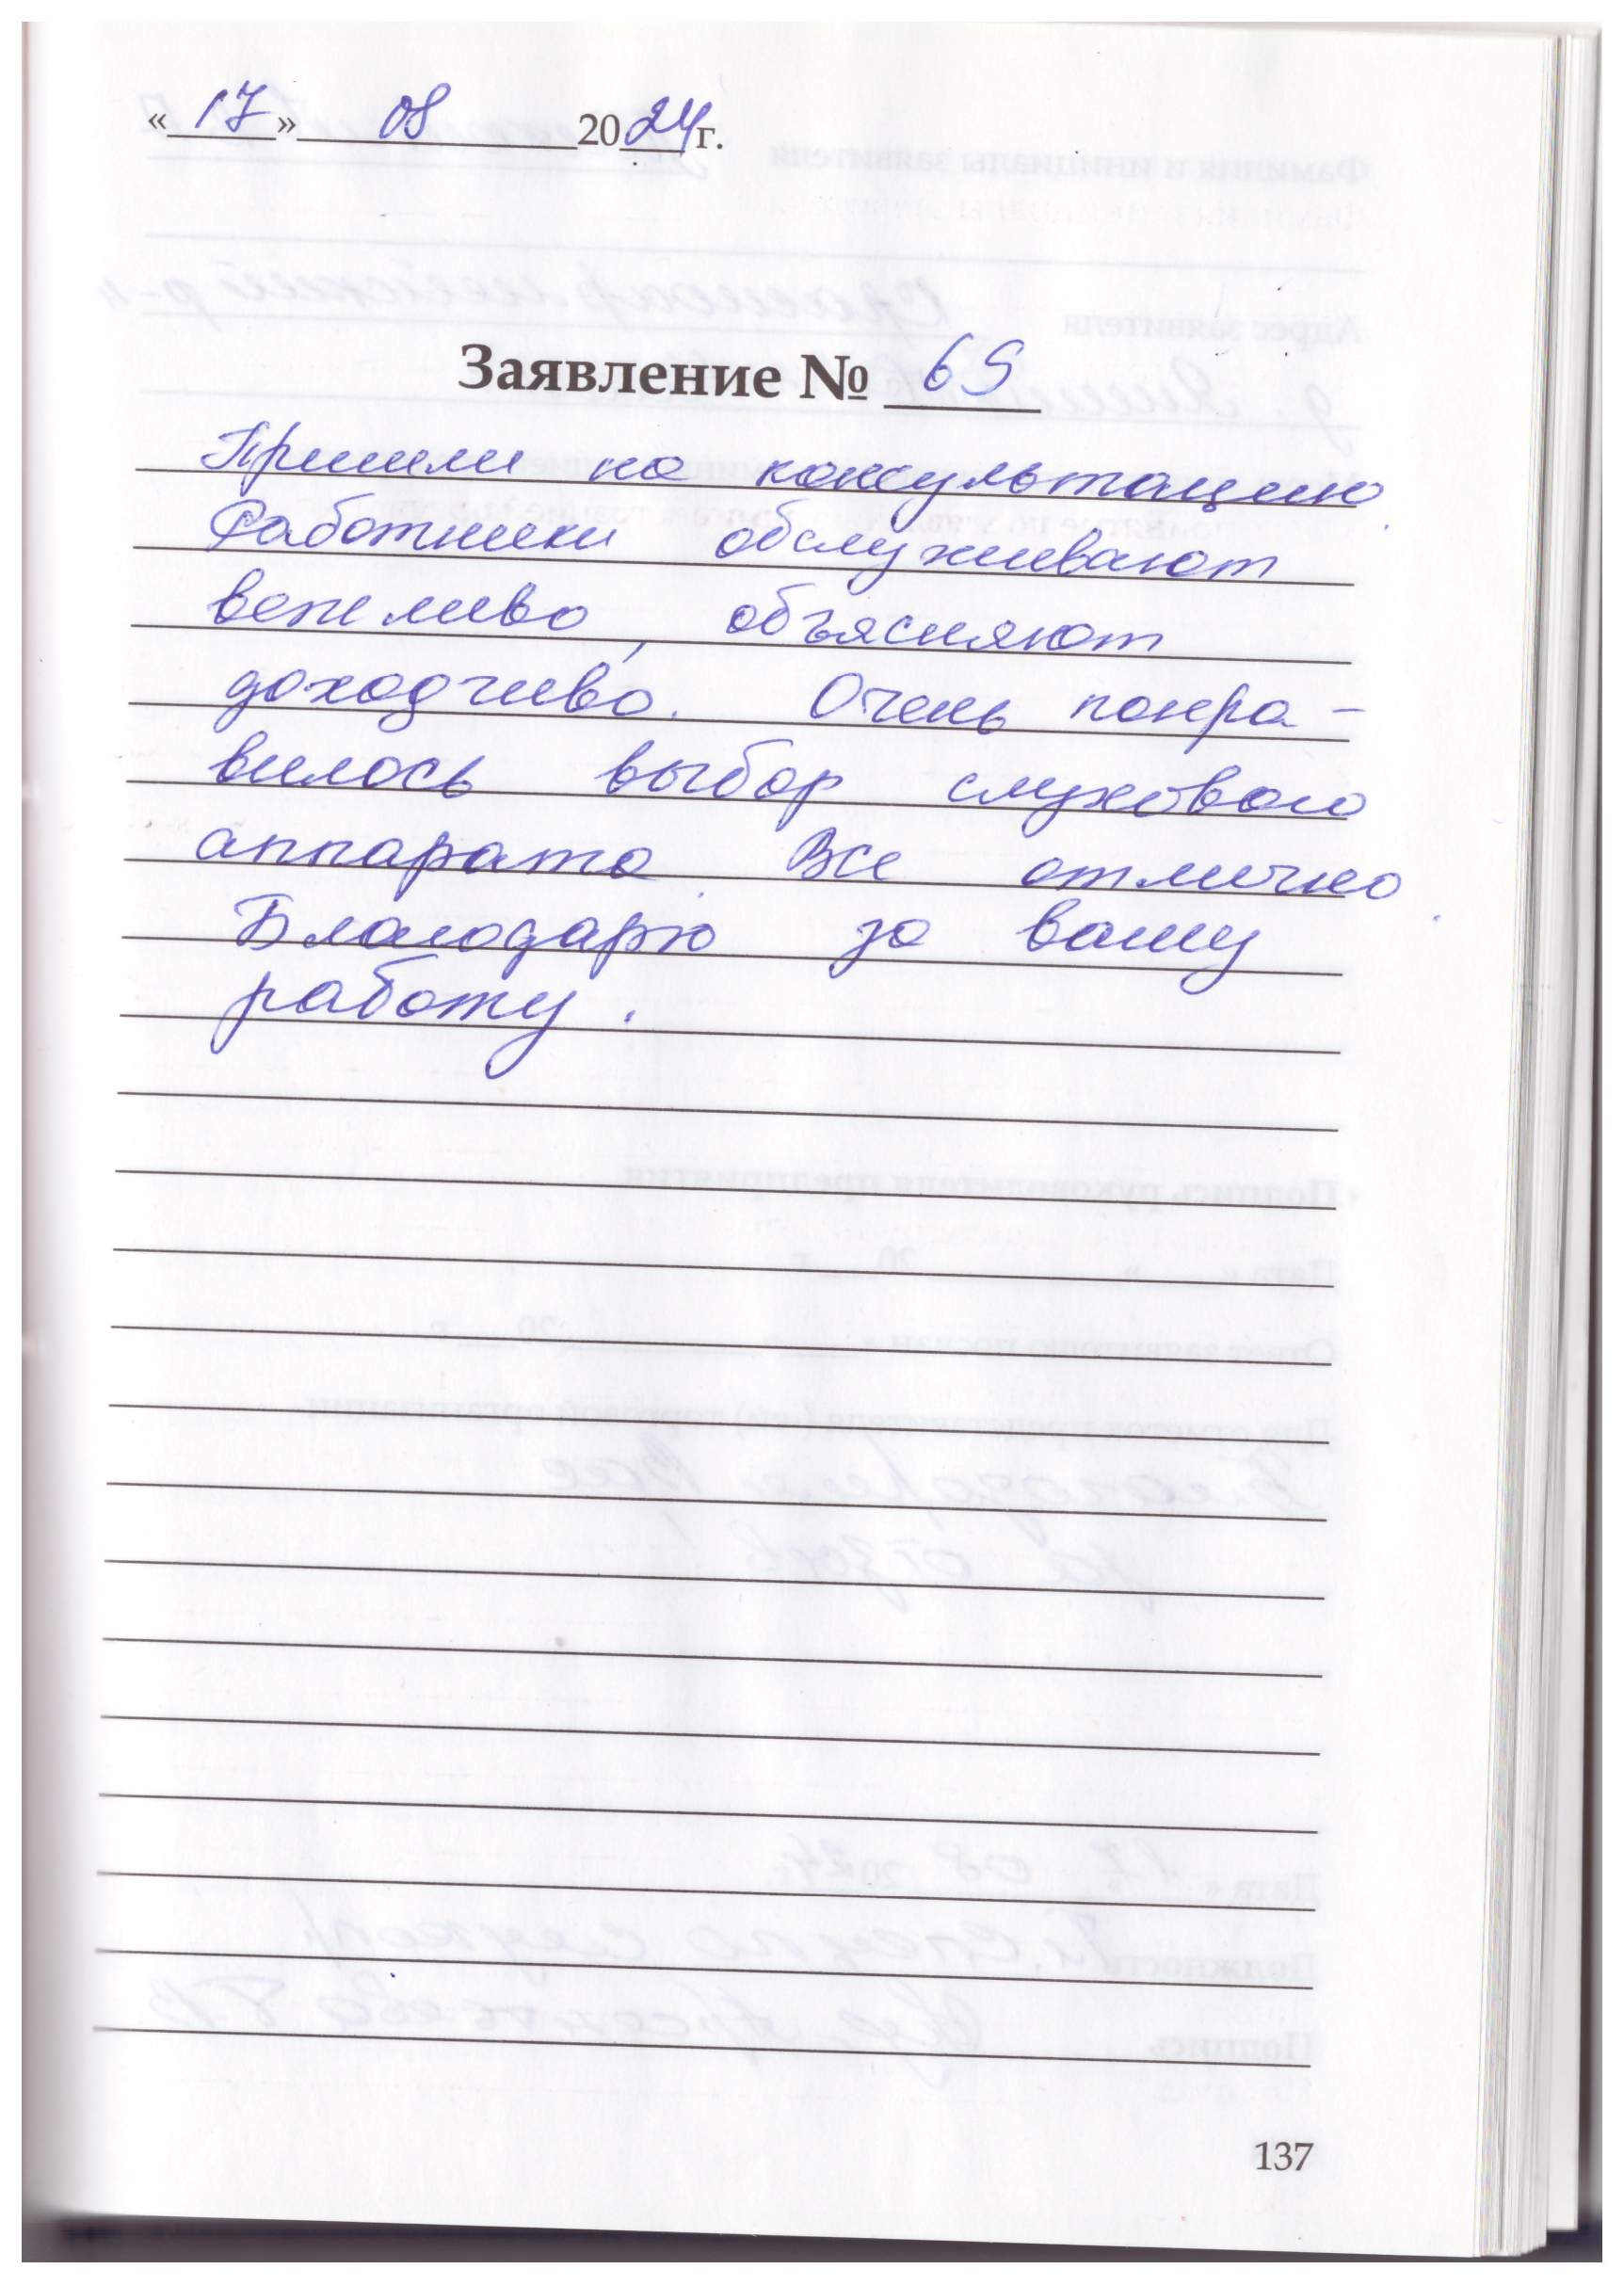 «17» 08 2024 г.
Заявление № 69
Пришли на консультацию.
Работники обслуживают
вежливо, объясняют
доходчиво. Очень понра-
вилось выбор слухового
аппарата. Все отлично.
Благодарю за вашу
работу.
137